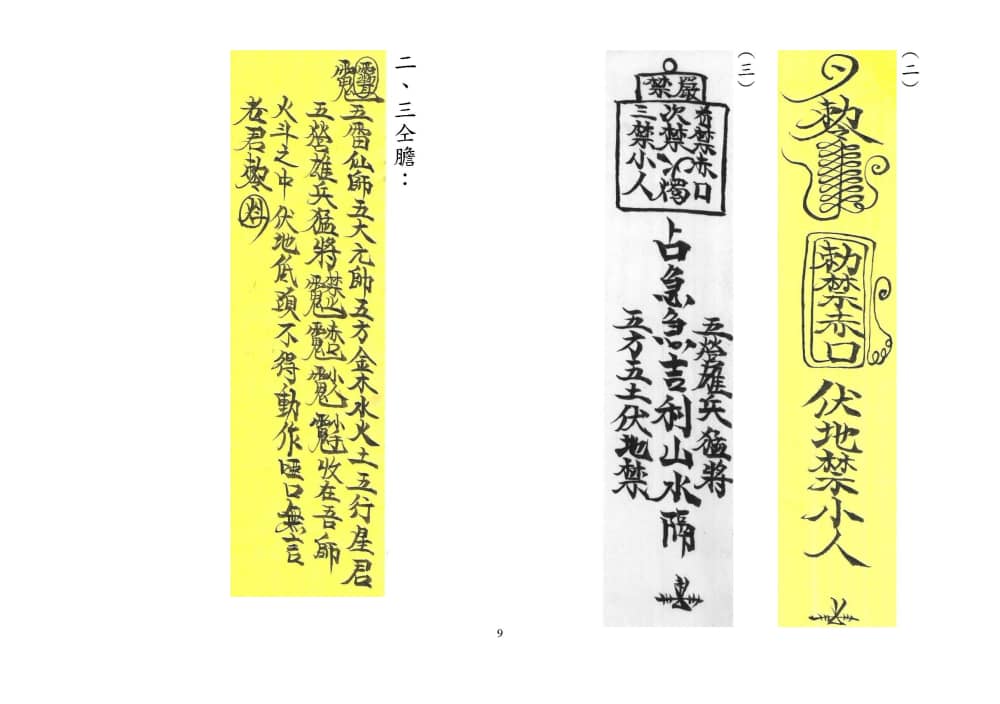 (二)
勅
勅禁赤口
伏地禁小人
(三)
嚴禁
禁赤口
次禁
三禁小人
五營雄兵猛將
占急急吉利山水隔
五方五土伏地禁
二、三仝膽：
五雷仙師五大元帥五方金木水火土五行星君
五營雄兵猛將
收在吾師
火斗之中伏地低頭不得動作啞口無言
老君勅
9